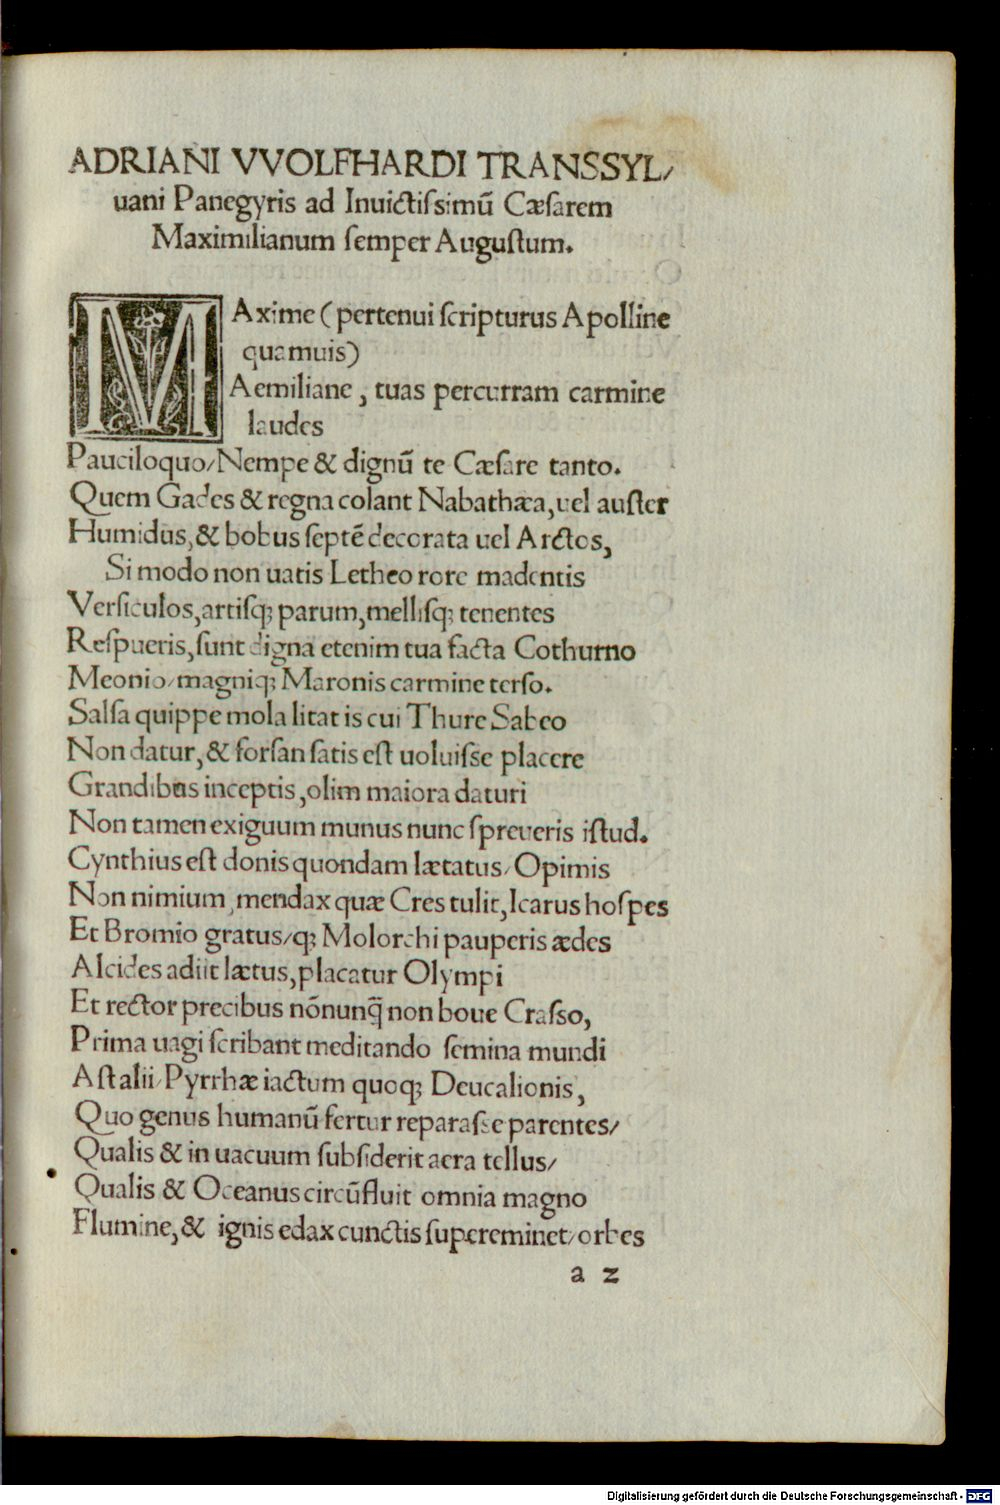 ADRIANI VVOLFHARDI TRANSSYL/
uani Panegyris ad Inuictiſsimū Cæſarem
Maximilianum ſemper Auguſtum.
MAxime (pertenui ſcripturus Apolline
quamuis)
Aemiliane, tuas percurram carmine
laudes
Pauciloquo/Nempe & dignū te Cæſare tanto.
Quem Gades & regna colant Nabathæa, uel auſter
Humidus, & bobus ſeptē decorata uel Arctos,
Si modo non uatis Letheo rore madentis
Verſiculos, artiſq; parum, melliſq; tenentes
Reſpueris, ſunt digna etenim tua facta Cothurno
Meonio/magniq; Maronis carmine terſo.
Salſa quippe mola litat is cui Thure Sabeo
Non datur, & forſan ſatis eſt uoluiſse placere
Grandibus inceptis, olim maiora daturi
Non tamen exiguum munus nunc ſpreueris iſtud.
Cynthius eſt donis quondam lætatus/Opimis
Non nimium, mendax quæ Cres tulit, Icarus hoſpes
Et Bromio gratus/q; Molorchi pauperis ædes
Alcides adiit lætus, placatur Olympi
Et rector precibus nōnunq̄ non boue Craſso,
Prima uagi ſcribant meditando ſemina mundi
Aſt alii/Pyrrhæ iactum quoq; Deucalionis,
Quo genus humanū fertur reparaſse parentes/
Qualis & in uacuum ſubſiderit aera tellus/
Qualis & Oceanus circūfluit omnia magno
Flumine, & ignis edax cunctis ſupereminet/orbes
a 2
Digitalisierung gefördert durch die Deutsche Forschungsgemeinschaft - DFG